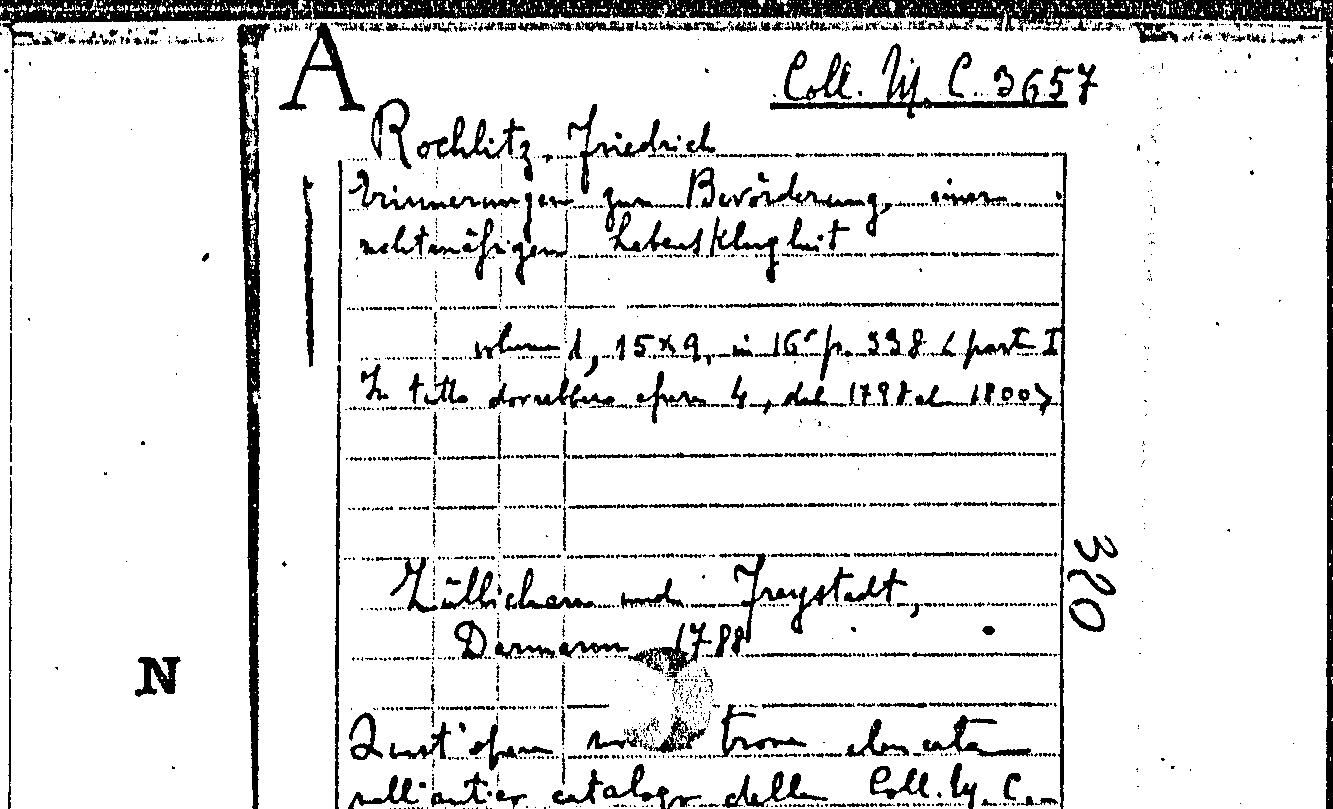 A
Coll. M. C. 3657
Rochlitz, Friedrich
Erinnerungen zur Bevörderung, einer
rechtmäßigen Lebensklugheit
volume 1, 15×9, in 16° p. 338 < parte I
In tutto dovrebbero essere 4, dal 1798 al 1800>
Züllichau und Freystadt,
Darnmann 1788
320
N
Quest'opera non si trova elencata
nell'antico catalogo della Coll. M. C.